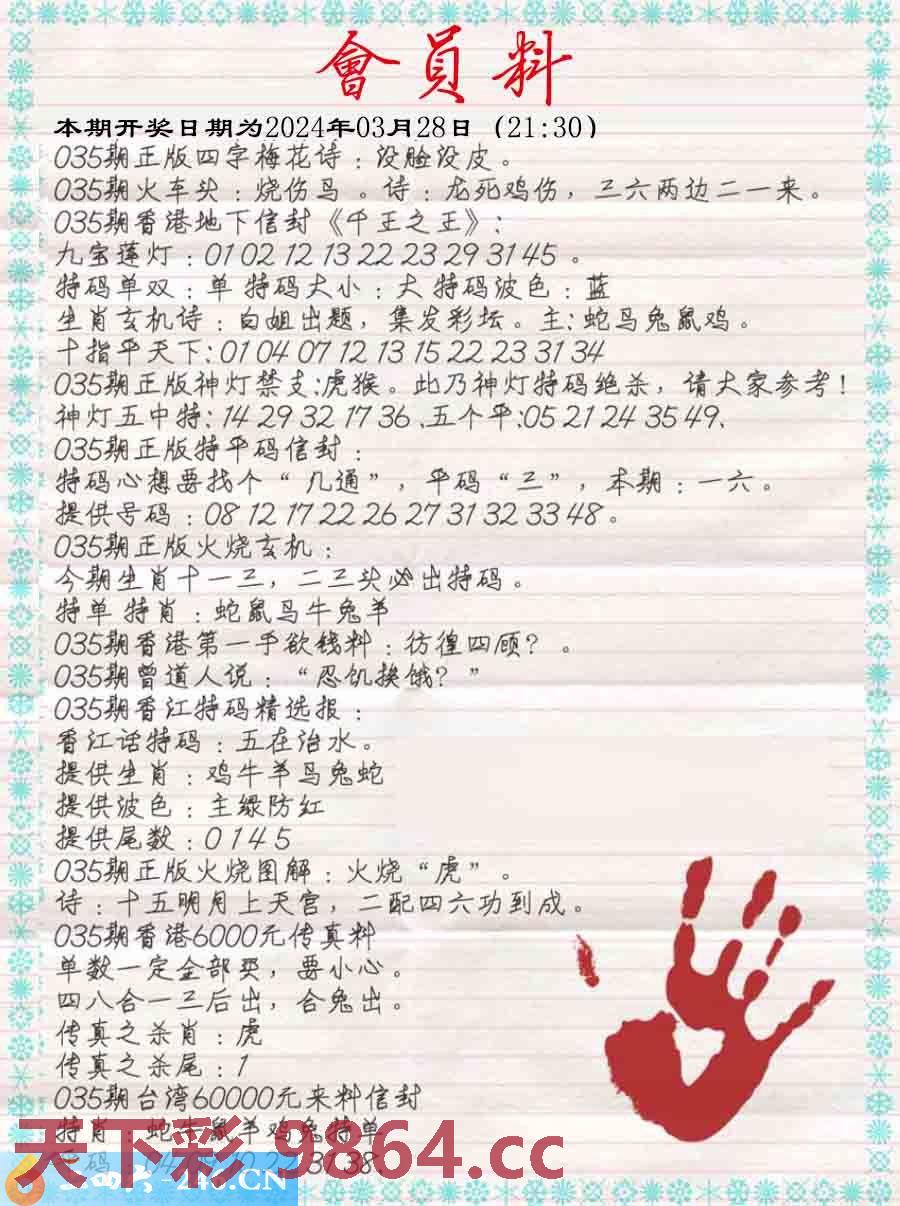 會員料
本期开奖日期为2024年03月28日（21:30）
035期正版四字梅花诗：没脸没皮。
035期火车头：烧伤鸟 。诗：龙死鸡伤，三六两边二一来。
035期香港地下信封《千王之王》：
九宝莲灯：01 02 12 13 22 23 29 31 45 。
特码单双：单 特码大小：大 特码波色：蓝
生肖玄机诗：白姐出题，集发彩坛。主：蛇马兔鼠鸡。
十指平天下：01 04 07 12 13 15 22 23 31 34
035期正版神灯禁支：虎猴。此乃神灯特码绝杀，请大家参考！
神灯五中特：14 29 32 17 36 、五个平：05 21 24 35 49、
035期正版特平码信封：
特码心想要找个“ 几通”，平码“三”，本期：一六。
提供号码：08 12 17 22 26 27 31 32 33 48 。
035期正版火烧玄机：
今期生肖十一三，二三头必出特码。
特单 特肖：蛇鼠马牛兔羊
035期香港第一手欲钱料：彷徨四顾？ 。
035期曾道人说：“忍饥挨饿？ ”
035期香江特码精选报：
香江话特码：五在治水。
提供生肖：鸡牛羊马兔蛇
提供波色：主绿防红
提供尾数：0 1 4 5
035期正版火烧图解：火烧“虎”。
诗：十五明月上天宫，二配四六功到成。
035期香港6000元传真料
单数一定全部买，要小心。
四八合一三后出，合兔出。
传真之杀肖：虎
传真之杀尾：1
035期台湾60000元来料信封
特肖：蛇牛鼠羊鸡兔特单
天下彩 - 9864.cc
31 38、
-246.CN